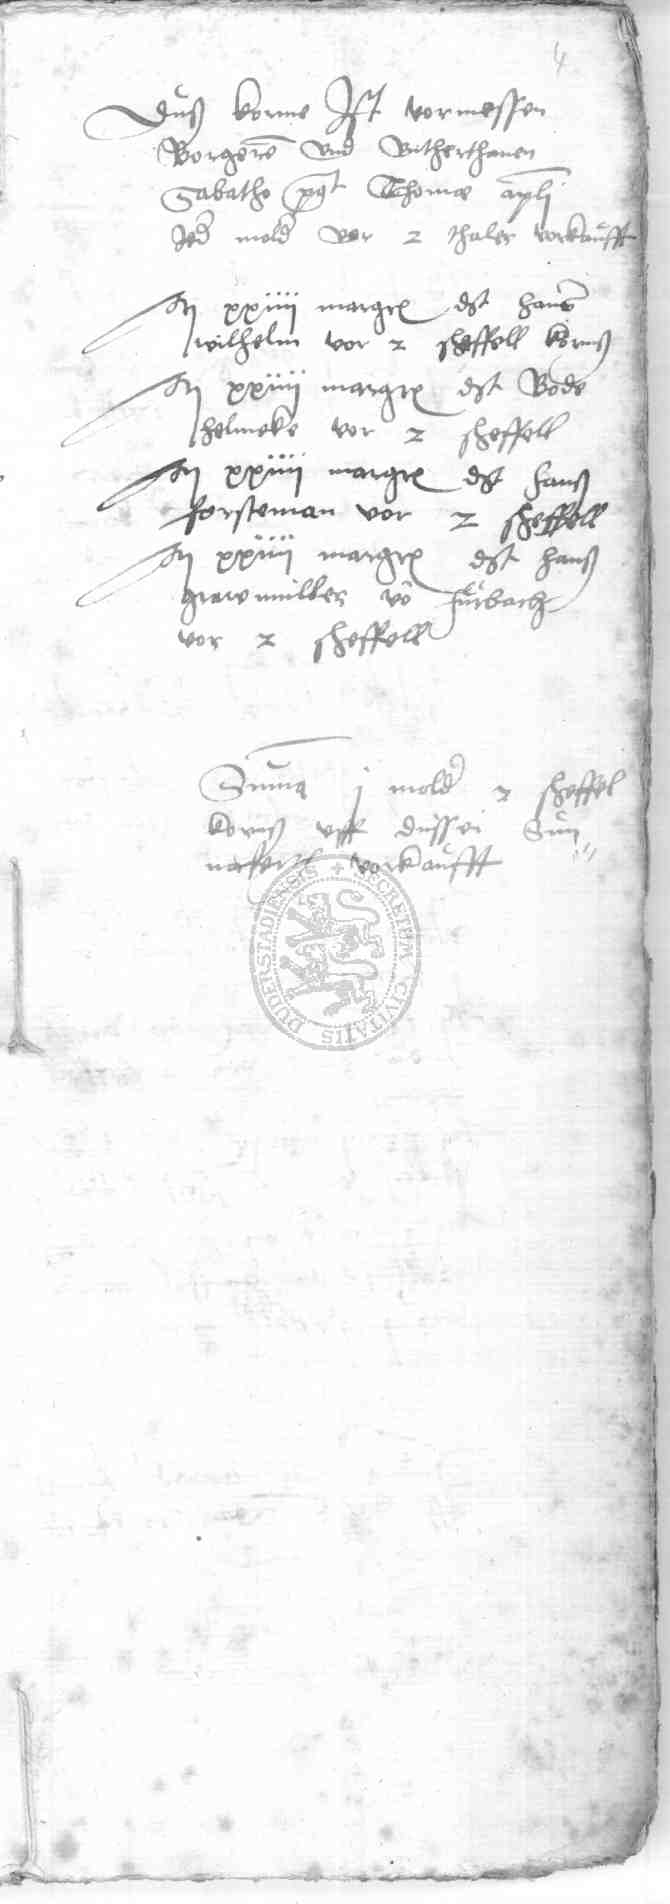 4
Duß korne Ist vormessen
Borgere vnd vntherthanen
Sabatho post Thome apli
Jed mold vor 2 thaler vorkaufft
xxiiii margr dt Hans
wilhelm vor 2 sheffell korns
xxiiii margr dt Bode
helmeke vor 2 sheffell
xxiiii margr dt hans
forsteman vor 2 sheffell
xxiiii margr dt hans
grawmuller vo furbach
vor 2 sheffell
Suma j mold 2 sheffel
korns vff dussen
vorkaufft
SECRETUM CIVITATIS DUDERSTADIENSIS